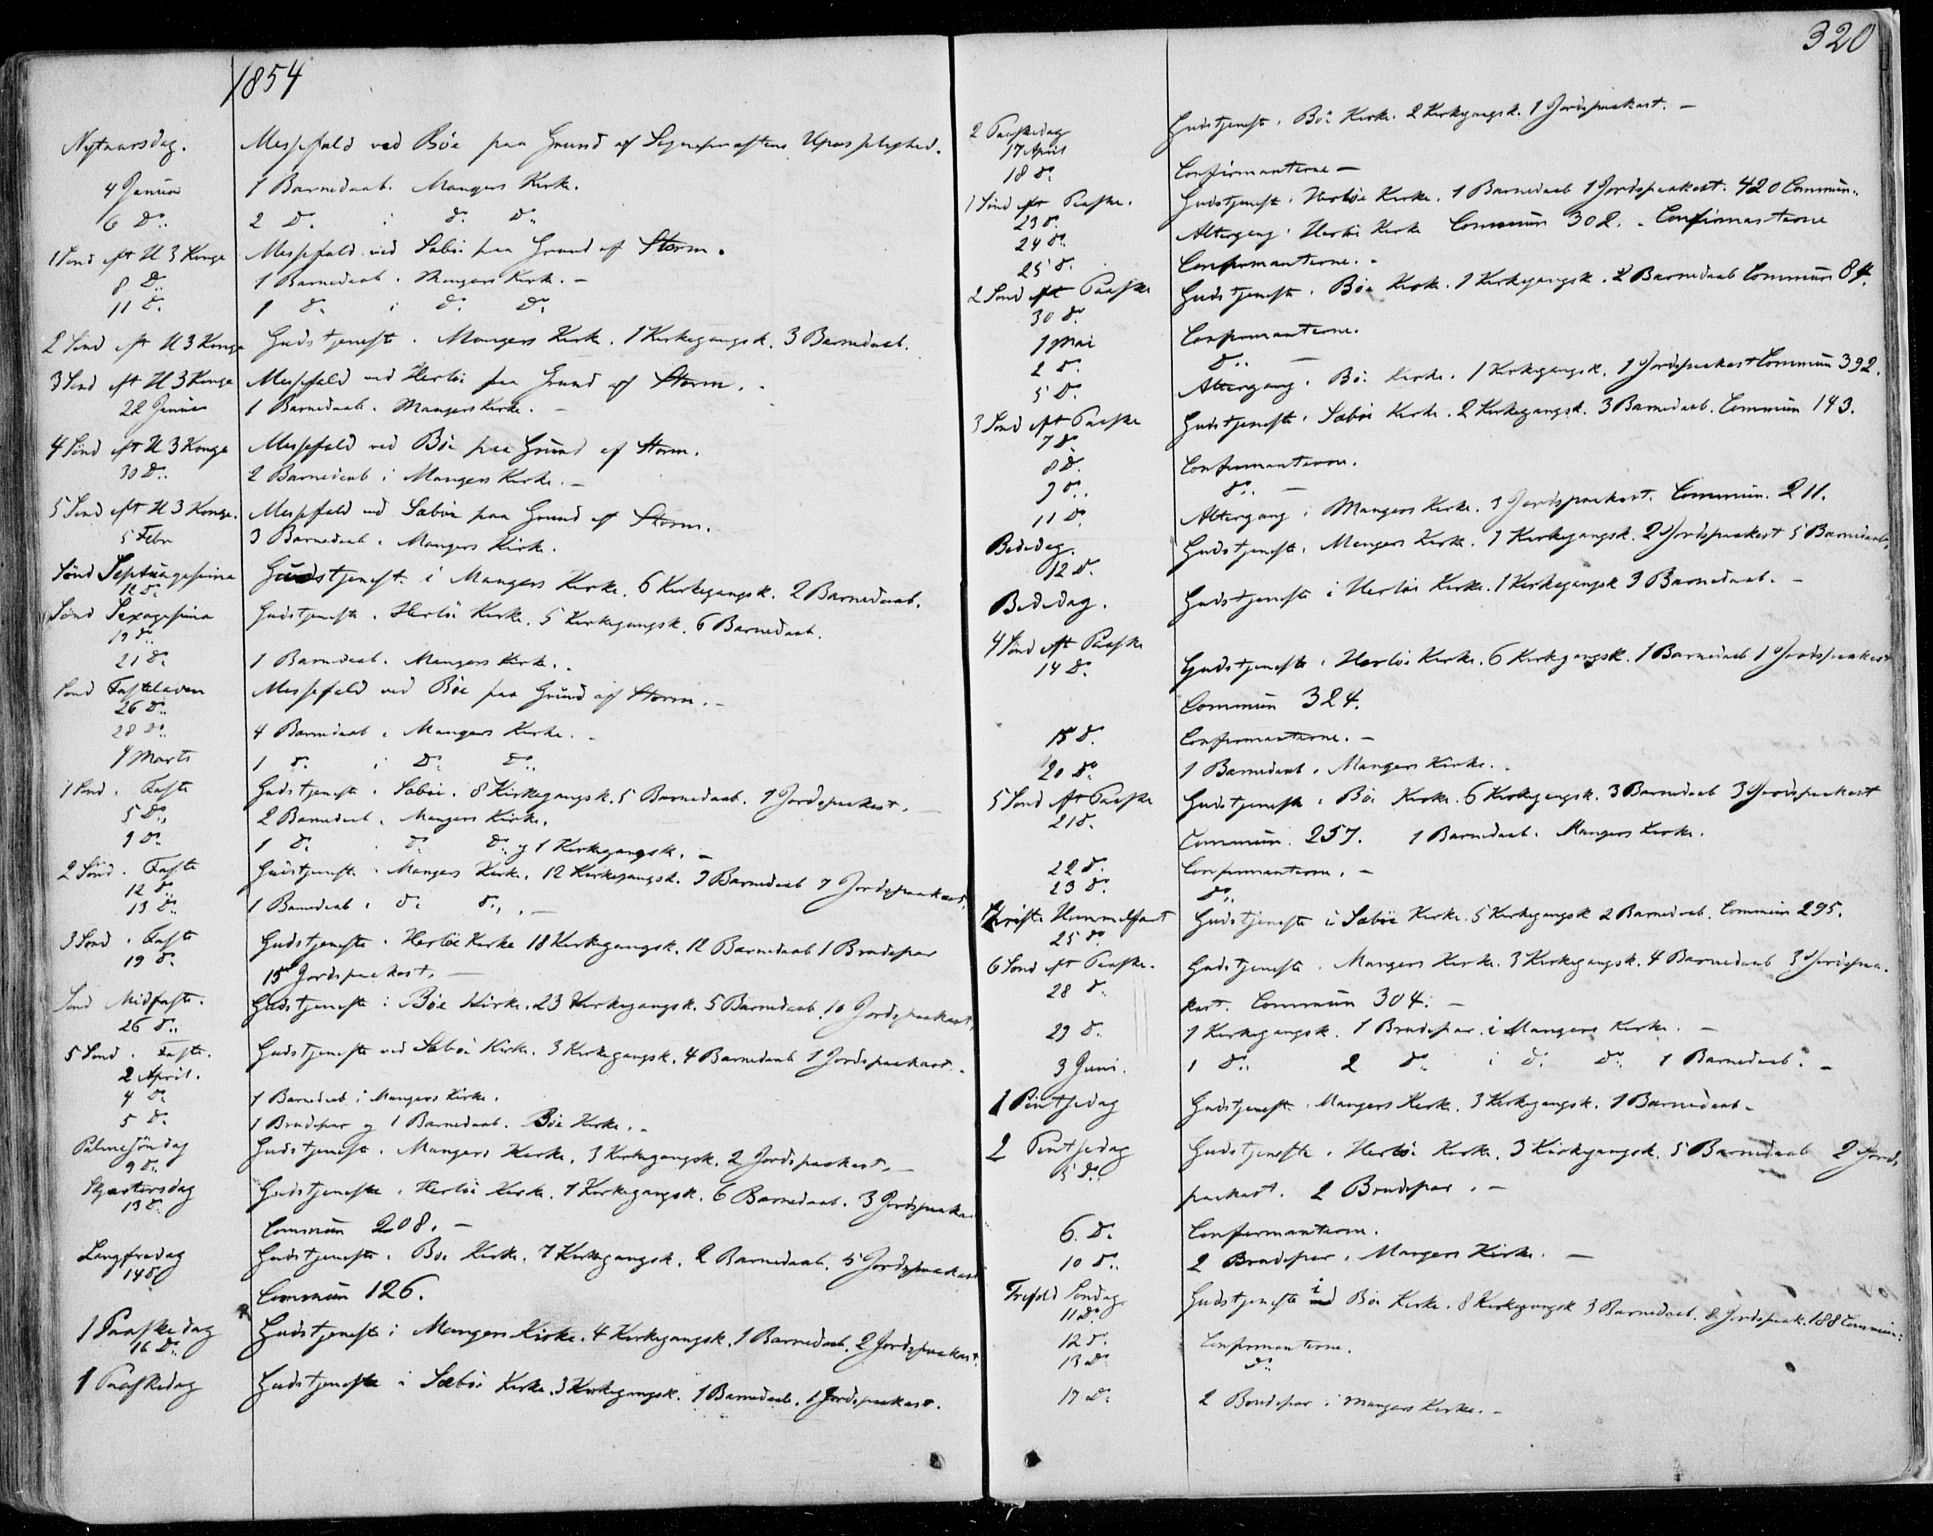 1854
Nytaarsdag. Messefald ved Bøe paa Grund af Sognepræstens Upasselighed.
4 Januar 1 Barnedaab i Mangers Kirke.
6 D.. 2 D. i d. D..
1 Sønd eft H 3 Konge Messefald ved Sæbøe paa Grund af Storm.
8 D.. 1 Barnedaab i Mangers Kirke. –
11 d. 1 d. i d. D.
2 Sønd eft H 3 Konge Gudstjeneste i Mangers Kirke. 1 Kirkegangsk. 3 Barnedaab.
3 Sønd eft H 3 Konge Messefald ved Herløe paa Grund af Storm. -
22 Januar 1 Barnedaab i Mangers Kirke. –
4 Sønd eft H 3 Konge Messefald ved Bøe paa Grund af Storm.
30 D.. 2 Barnedaab i Mangers Kirke. –
5 Sønd eft H 3 Konge. Messefald ved Sæbøe paa Grund af Storm.
5 Febr 3 Barnedaab i Mangers Kirke.
Sønd Septuagesima Gudstjenest i Mangers Kirke. 6 Kirkegangsk. 2 Barnedaab.
12 d.
Sønd Sexagesima Gudstjeneste i Herløe Kirke. 5 Kirkegangsk. 6 Barnedaab.
19 d..
21 d. 1 Barnedaab i Mangers Kirke. .
Sønd Fastelaven Messefald ved Bøe paa Grund af Storm. –
26 D..
28 D.. 4 Barnedaab i Mangers Kirke. -
4 Marts 1 d. i D. D..
1 Sønd i Faste Gudstjeneste i Sæbøe. 8 Kirkegangsk. 5 Barnedaab. 1 Jordspaakast.
5 D.. 2 Barnedaab i Mangers Kirke.
9 D. 1 D. i d. D.. og 1 Kirkegangsk. –
2 Sønd i Faste Gudstjeneste i Mangers Kirke. 12 Kirkegangsk. 9 Barnedaab 7 Jordspaakast.
12 d..
13 D.. 1 Barnedaab i d. d.. –
3 Sønd i Faste Gudstjeneste i Herløe Kirke 18 Kirkegangsk. 12 Barnedaab 1 Brudepar
19 d. 15 Jordspaakast. –
Sønd Midfaste. Gudstjeneste i Bøe Kirke. 23 Kirkegangsk. 5 Barnedaab. 10 Jordspaakast.
26 d..
5 Sønd i Faste. Gudstjeneste ved Sæbøe Kirke. 3 Kirkegangsk. 4 Barnedaab 1 Jordspaakast. -
2 April.
4 D. 1 Barnedaab i Mangers Kirke.
5 D. 1 Brudepar og 1 Barnedaab i Bøe Kirke. -
Palmesøndag Gudstjenest i Mangers Kirke. 3 Kirkegangsk. 2 Jordspaakast. –
9 D..
Skjærtorsdag Gudstjeneste i Herløe Kirke. 1 Kirkegangsk. 6 Barnedaab. 3 Jordspaaka
13 D. Commun 208. –
Langfredag Gudstjeneste i Bøe Kirke. 7 Kirkegangsk. 2 Barnedaab. 5 Jordspaakast
14 D Commun 126.
1 Paaskedag Gudstjeneste i Mangers Kirke. 4 Kirkegangsk. 1 Barnedaab. 2 Jordspaakast.
16 D..
1 Paaskedag Gudstjeneste i Sæbøe Kirke. 3 Kirkegangsk. 1 Barnedaab. 1 Jordspaakast.
320
2 Paaskedag Gudstjenest i Bøe Kirke. 2 Kirkegangsk. 1 Jordspaakast. –
17 April
18 D. Confirmanterne –
1 Sønd eft Paaske. Gudstjenest i Herløe Kirke. 1 Barnedaab 1 Jordspaakast. 420 Commun..
23 d.
24 D.. Altergang i Herløe Kirke Commun 302. - Confirmanterne
25 d. Confirmanterne. -
2 Sønd eft Paaske Gudstjeneste i Bøe Kirke. 1 Kirkegangsk. 2 Barnedaab Commun 84.
30 d.
1 Mai Confirmanterne.
2 d. D.. –
5 D. Altergang i Bøe Kirke. 1 Kirkegangsk. 1 Jordspaakast Commun 392.
3 Sønd eft Paaske Gudstjeneste i Sæbøe Kirke. 2 Kirkegangsk. 3 Barnedaab. Commun 143.
7 D.
8 D. Confirmanterne.
9 D.. d.. –
11 D. Altergang i Mangers Kirke. 3 Jordspaakast. Commun. 211.
Bededag. Gudstjeneste i Mangers Kirke. 1 Kirkegangsk. 2 Jordspaakast 5 Barnedaab.
12 D.
Bededag. Gudstjeneste i Herløe Kirke. 1 Kirkegangsk 3 Barnedaab. –
4 Sønd eft Paaske Gudstjeneste i Herløe Kirke. 6 Kirkegangsk. 1 Barnedaab 1 Jordspaakast
14 D. Commun 324.
15 D. Confirmanterne. –
20 d. 1 Barnedaab i Mangers Kirke. .
5 Sønd eft Paaske Gudstjeneste i Bøe Kirke. 6 Kirkegangsk. 3 Barnedaab 3 Jordspaakast
21 d. Commun. 257. 1 Barnedaab i Mangers Kirke.
22 d. Confirmanterne. –
23 d. D..
Christi Himmelfart Gudstjeneste i Sæbøe Kirke. 5 Kirkegangsk 2 Barnedaab. Commun 295.
25 d.
6 Sønd eft Paaske. Gudstjeneste i Mangers Kirke. 3 Kirkegangsk. 4 Barnedaab 3 Jordspaa-
28 d. kast. Commun 304. –
29 D. 1 Kirkegangsk. 1 Brudepar i Mangers Kirke. –
3 Juni. 1 D.. 2 d. i d. D.. 1 Barnedaab. –
1 Pintsedag Gudstjenest i Mangers Kirke. 3 Kirkegangsk. 1 Barnedaab.
2 Pintsedag Gudstjeneste i Herløe Kirke. 3 Kirkegangsk. 5 Barnedaab 2 Jords
5 D.. paakast. 2 Brudepar. –
6. D. Confirmanterne.
10 D.. 2 Brudepar i Mangers Kirke. –
Trefold. Søndag Gudstjeneste i ved Bøe Kirke. 8 Kirkegangsk 3 Barnedaab. 2 Jordspaak. 188 Commun:
11 D.
12 d. Confirmanterne.
13 D. D..
17 D. 2 Brudepar i Mangers Kirke. –